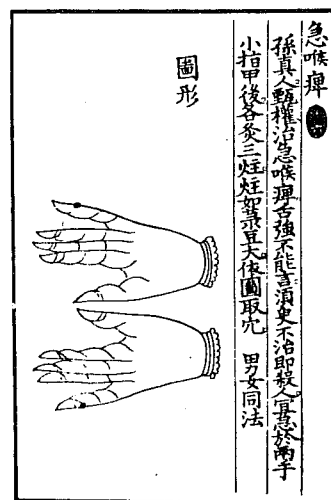 急喉痺
孫真人甄權治急喉痺舌強不能言須臾不治即殺人宜急於兩手
小指甲後各灸三炷炷如菉豆大依圖取穴 男女同法
圖形